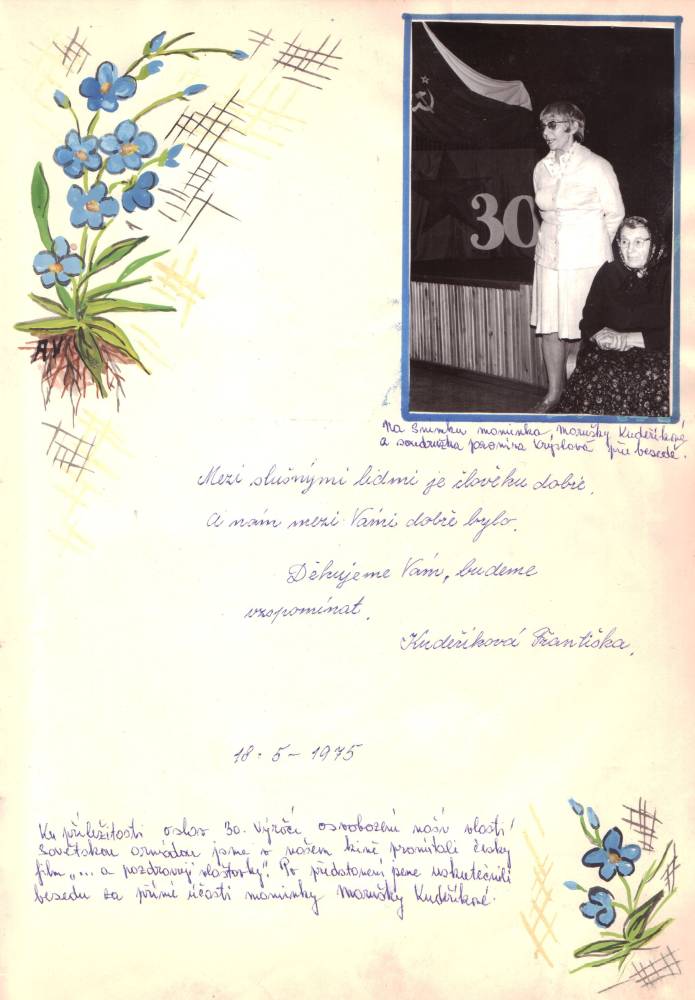 30
AV
Na snímku maminka Marušky Kudeříkové
a soudružka Krýslová při besedě.
Mezi slušnými lidmi je člověku dobře.
A nám mezi Vámi dobře bylo.
Děkujeme Vám, budeme
vzpomínat.
Kudeříková Františka.
18. 5 - 1975
Ku příležitosti oslav 30. výročí osvobození naší vlasti
Sovětskou armádou jsme v našem kině promítali český
film „... a pozdravuji vlaštovky". Po představení jsme uskutečnili
besedu za přímé účasti maminky Marušky Kudeříkové.